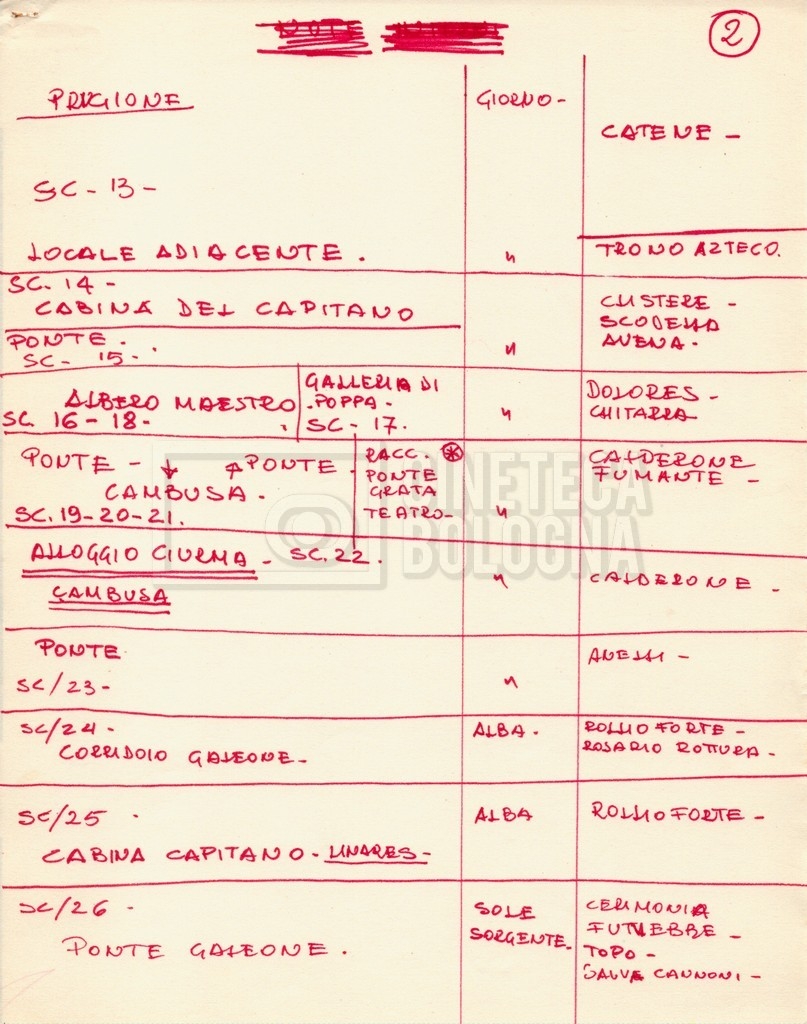 2
PRIGIONE
GIORNO -
CATENE -
SC - 13 -
LOCALE ADIACENTE .
"
TRONO AZTECO.
SC. 14 -
CABINA DEL CAPITANO
CLISTERE -
SCODELLA
AVENA -
PONTE .
SC - 15 -
"
ALBERO MAESTRO
SC. 16 - 18 -
GALLERIA DI
POPPA -
SC - 17.
"
DOLORES -
CHITARRA
PONTE - ↓ ↑ PONTE .
CAMBUSA .
SC. 19-20-21.
RACC. *
PONTE
GRATA
TEATRO -
"
CALDERONE
FUMANTE -
ALLOGGIO CIURMA - SC. 22 .
CAMBUSA
"
CALDERONE .
PONTE
SC/23 -
"
ANELLI -
SC/24 -
CORRIDOIO GALEONE -
ALBA -
ROLLIO FORTE -
ROSARIO ROTTURA -
SC/25 -
CABINA CAPITANO - LINARES -
ALBA
ROLLIO FORTE -
SC/26 -
PONTE GALEONE .
SOLE
SORGENTE.
CERIMONIA
FUNEBRE -
TOPO -
SALVE CANNONI -
CINETECA
BOLOGNA